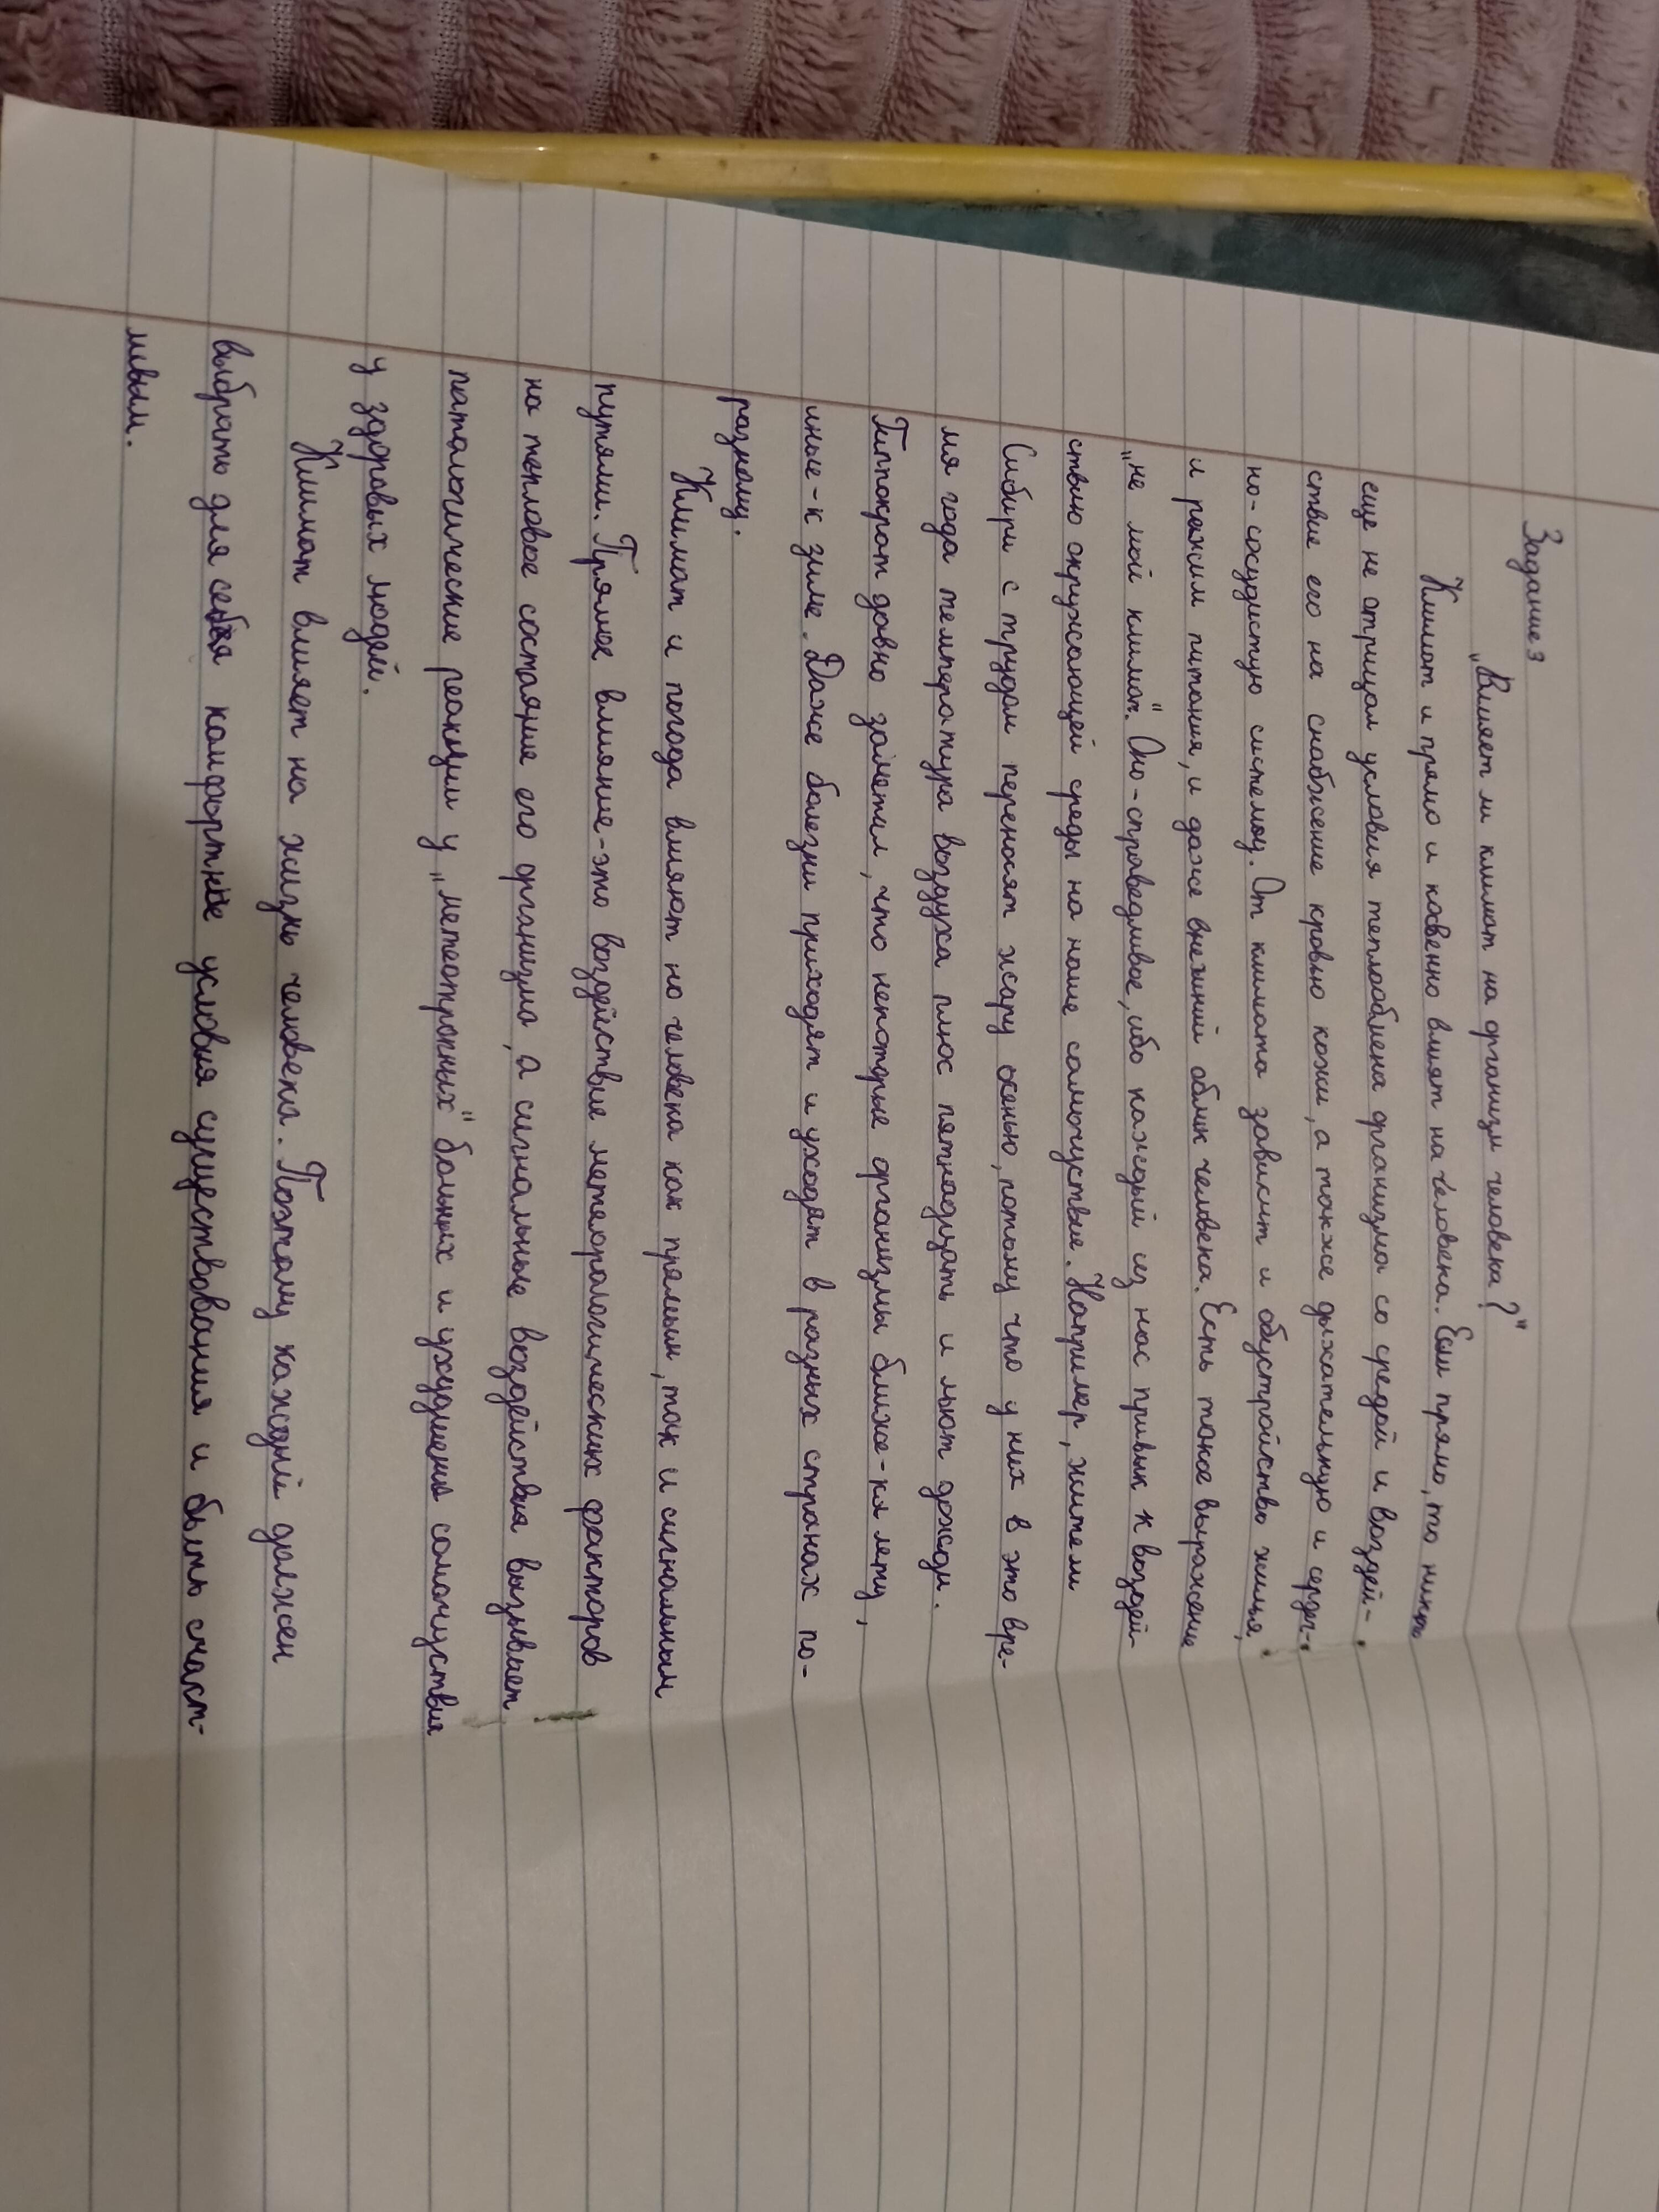 Задание 3
„Влияет ли климат на организм человека?"
Климат и прямо и косвенно влият на человека. Если прямо, то никто
еще не отрицал условия теплообмена организма со средой и воздей-
ствие его на снабжение кровью кожи, а также дыхательную и сердеч-
но-сосудистую системы. От климата зависит и обустройство жилья,
и режим питания, и даже внешний облик человека. Есть такое выражение
„не мой климат". Оно - справедливое, ибо каждый из нас привык к воздей-
ствию окружающей среды на наше самочуствие. Например, жители
Сибири с трудом переносят жару осенью, потому что у них в это вре-
мя года температура воздуха плюс пятнадцать и льют дожди.
Гиппократ давно заметил, что некоторые организмы ближе-кя лету,
иные-к зиме. Даже болезни приходят и уходят в разных странах по-
разному.
Климат и погода влияют на человека как прямым, так и сигнальным
путями. Прямое влияние-это воздействие метеорологических факторов
на тепловое состояние его организма, а сигнальные воздействия вызывает
патологические реакции у „метеотропных" больных и ухудшения самочуствия
у здоровых людей.
Климат влияет на жизнь человека. Поэтому каждый должен
выбрать для себя комфортные условия существования и быть счаст-
ливым.